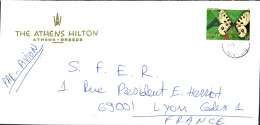 THE ATHENS HILTON
ATHENS · GREECE
PAR AVION
S. F. E. R.
1 Rue President E. Herriot
69001 Lyon Cedex 1
FRANCE